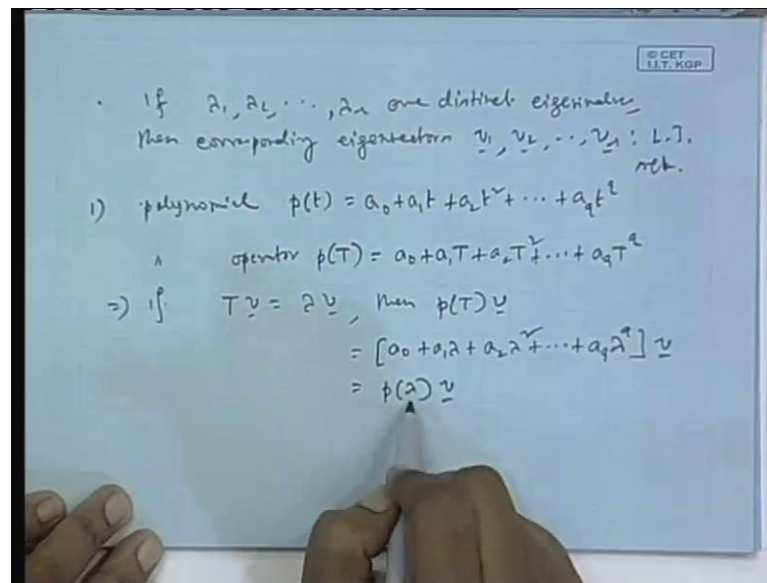 © CET
I.I.T. KGP
· If λ₁, λ₂, ..., λₙ are distinct eigenvalues,
then corresponding eigenvectors v₁, v₂, ..., vₙ : L.I.
set.
1) polynomial p(t) = a₀ + a₁t + a₂t² + ... + a_q t^q
∧ operator p(T) = a₀ + a₁T + a₂T² + ... + a_q T^q
=) If T v = λ v, then p(T) v
= [a₀ + a₁λ + a₂λ² + ... + a_q λ^q] v
= p(λ) v